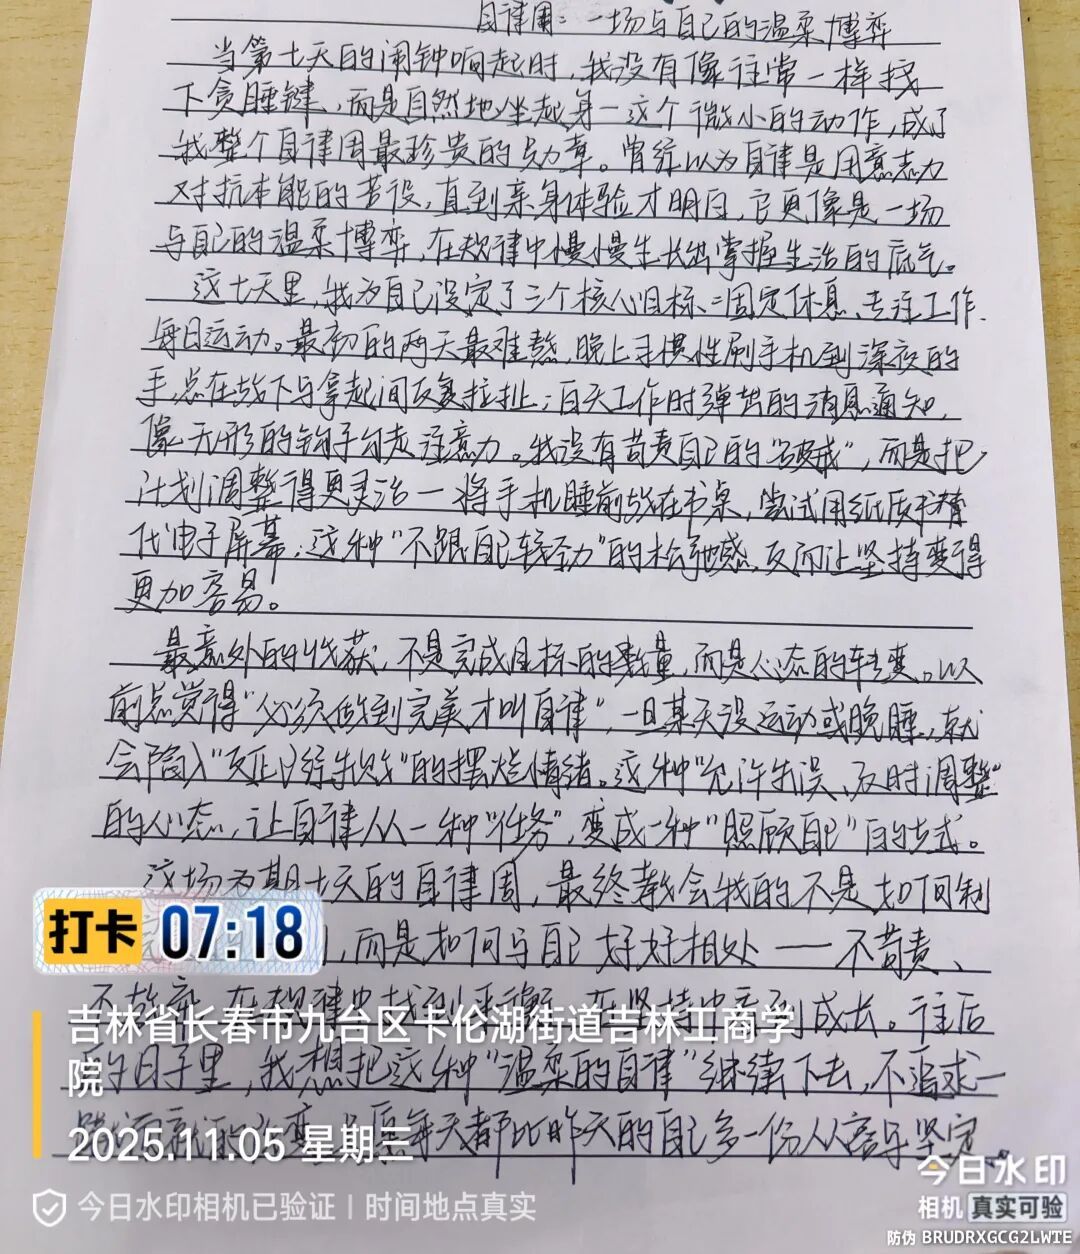 自律周：一场与自己的温柔博弈
当第七天的闹钟响起时，我没有像往常一样按
下贪睡键，而是自然地坐起身—这个微小的动作，成了
我整个自律周最珍贵的勋章。曾经以为自律是用意志力
对抗本能的苦役，直到亲身体验才明白，它更像是一场
与自己的温柔博弈，在规律中慢慢生长出掌握生活的底气。
这七天里，我为自己设定了三个核心目标：固定休息、专注工作、
每日运动。最初的两天最难熬，晚上习惯性刷手机到深夜的
手，总在放下与拿起间反复拉扯；白天工作时弹出的消息通知，
像无形的钩子勾走注意力。我没有苛责自己的“破戒”，而是把
计划调整得更灵活—将手机睡前放在书桌，尝试用纸质书替
代电子屏幕，这种“不跟自己较劲”的松弛感，反而让坚持变得
更加容易。
最意外的收获，不是完成目标的数量，而是心态的转变。以
前总觉得“必须做到完美才叫自律”，一旦某天没运动或晚睡，就
会陷入“反正已经失败”的摆烂情绪。这种“允许失误、及时调整”
的心态，让自律从一种“任务”，变成一种“照顾自己”的方式。
这场为期七天的自律周，最终教会我的不是如何制
，而是如何与自己好好相处——不苛责、
不放弃，在规律中找到平衡，在坚持中看到成长。往后
的日子里，我想把这种“温柔的自律”继续下去，不追求一
每天都比昨天的自己多一份从容与坚定。
打卡 07:18
吉林省长春市九台区卡伦湖街道吉林工商学
院
2025.11.05 星期三
今日水印相机已验证 | 时间地点真实
今日水印
相机 真实可验
防伪 BRUDRXGCG2LWTE